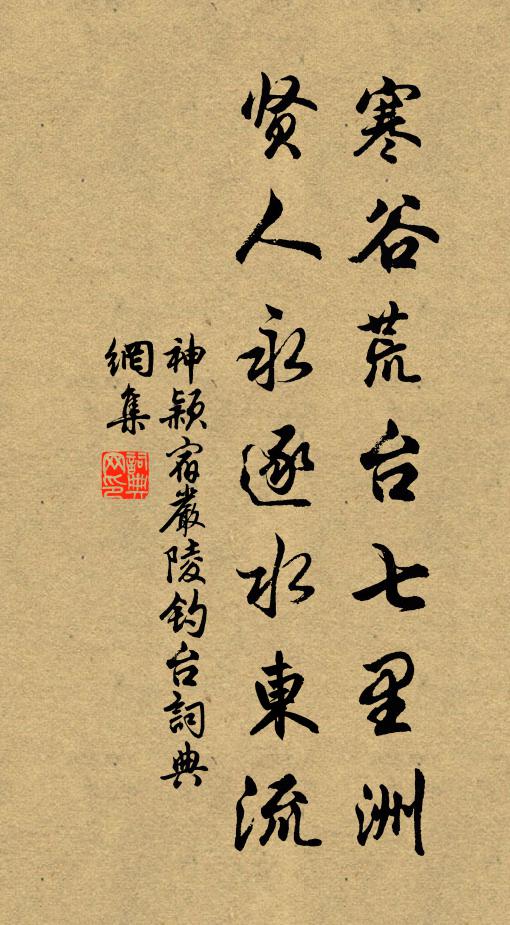 寒谷荒台七里洲
贤人永逐水東流
神颖宿嚴陵钓台詞典
網集
詞典网印